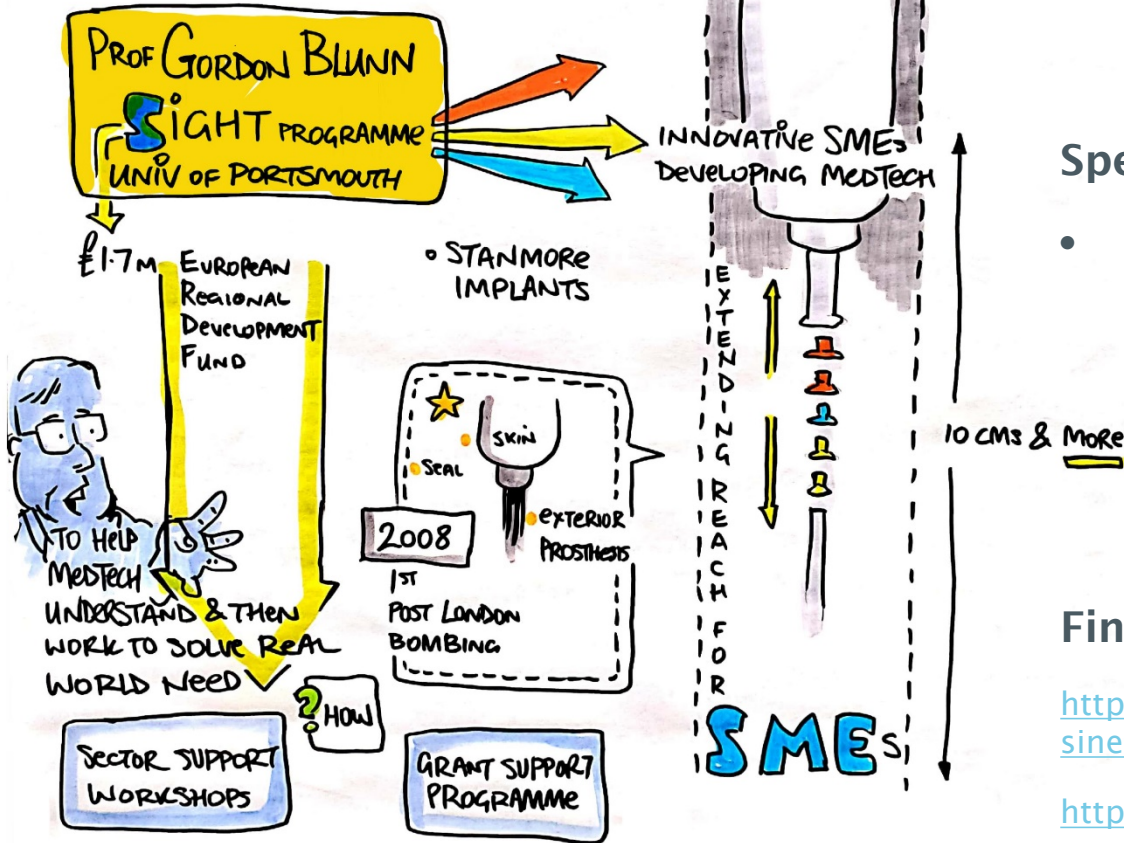 PROF GORDON BLUNN
SIGHT PROGRAMME
UNIV OF PORTSMOUTH
£1.7M
EUROPEAN
REGIONAL
DEVELOPMENT
FUND
TO HELP
MEDTECH
UNDERSTAND & THEN
WORK TO SOLVE REAL
WORLD NEED
? HOW
SECTOR SUPPORT
WORKSHOPS
GRANT SUPPORT
PROGRAMME
• STANMORE
IMPLANTS
SKIN
SEAL
EXTERIOR
PROSTHESIS
2008
1ST
POST LONDON
BOMBING
INNOVATIVE SMEs
DEVELOPING MEDTECH
EXTENDING REACH FOR
SMEs
10 CMS & MORE
Spe
•
Fin
http
sine
http